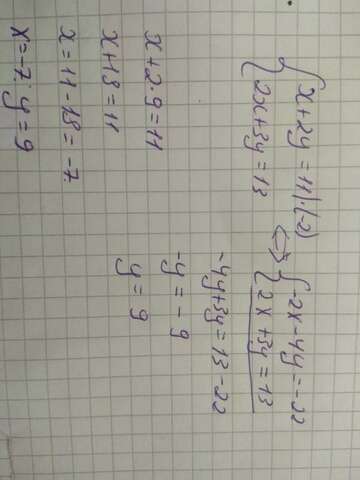 {x+2y=11|·(-2)
{2x+3y=13
⇔ {-2x-4y=-22
{2x+3y=13
-4y+3y=13-22
-y=-9
y=9
x+2·9=11
x+18=11
x=11-18=-7
x=-7; y=9